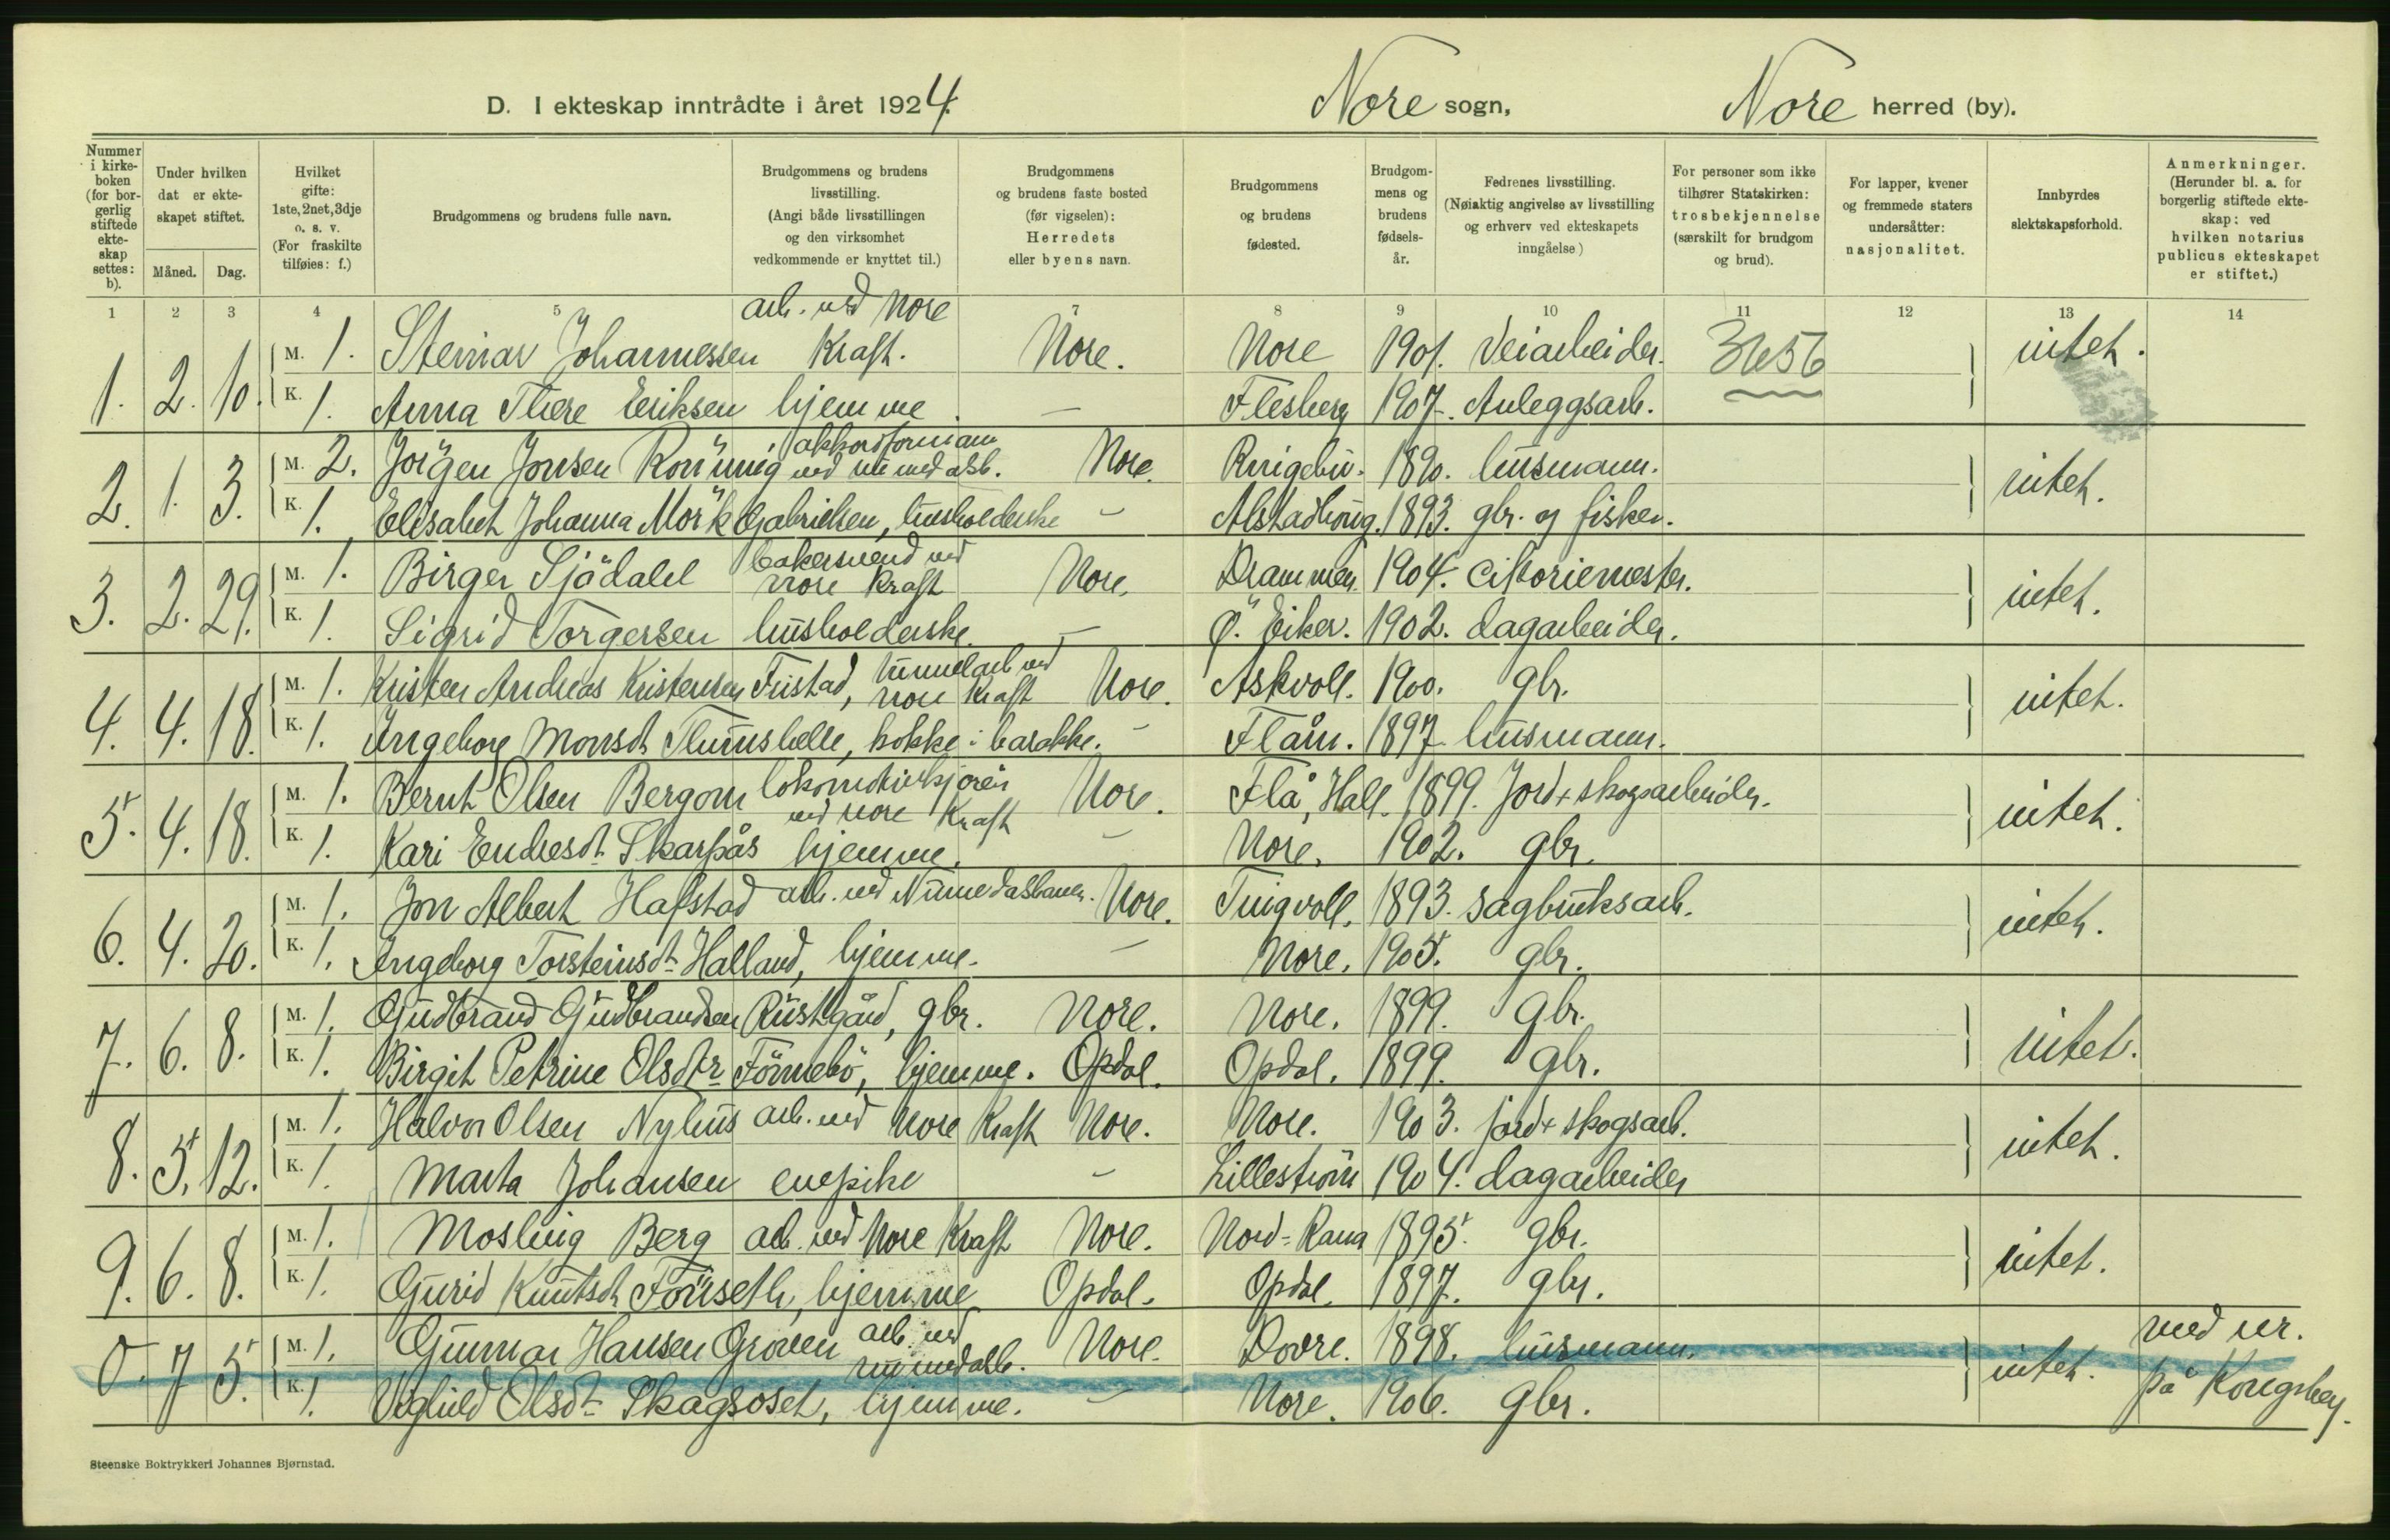 D. I ekteskap inntrådte i året 1924. Nore sogn, Nore herred (by).
Nummer i kirke- boken (for bor- gerlig stiftede ekte- skap settes: b).
Under hvilken dat er ekte- skapet stiftet.
Måned. Dag.
Hvilket gifte: 1ste, 2net, 3dje o. s. v. (For fraskilte tilføies: f.)
Brudgommens og brudens fulle navn.
Brudgommens og brudens livsstilling. (Angi både livsstillingen og den virksomhet vedkommende er knyttet til.)
Brudgommens og brudens faste bosted (før vigselen): Herredets eller byens navn.
Brudgommens og brudens fødested.
Brudgom- mens og brudens fødsels- år.
Fedrenes livsstilling. (Nøiaktig angivelse av livsstilling og erhverv ved ekteskapets inngåelse)
For personer som ikke tilhører Statskirken: trosbekjennelse (særskilt for brudgom og brud).
For lapper, kvener og fremmede staters undersåtter: nasjonalitet.
Innbyrdes slektskapsforhold.
Anmerkninger. (Herunder bl. a. for borgerlig stiftede ekte- skap: ved hvilken notarius publicus ekteskapet er stiftet.)
1 2 3 4 5 7 8 9 10 11 12 13 14
1. 2. 10. M. 1. Steinar Johannessen arb. ved Nore Kraft. Nore. Nore 1901. Veiarbeider. 3656 intet.
K. 1. Anna There Eriksen hjemme. – Flesberg 1907. Anleggsarb.
2. 1. 3. M. 2. Jörgen Jonsen Rönning, akkordformann ved numedalsb. Nore. Ringebu. 1890. husmann. intet.
K. 1. Elisabet Johanna Mörk Gabrielsen, husholderske – Alstadhoug. 1893. gbr. og fisker.
3. 2. 29. M. 1. Birger Sjödahl bakersvend ved Nore Kraft Nore. Drammen. 1904. Cikoriemester. intet.
K. 1. Sigrid Torgersen husholderske. – Ø. Eiker. 1902. dagarbeider.
4. 4. 18. M. 1. Kristen Andreas Kristensen Fristad, tunnelarb. ved Nore Kraft Nore. Askvoll. 1900. gbr. intet.
K. 1. Ingeborg Monsdt. Flumshelle, kokke i barakke. – Flåm. 1897. husmann.
5. 4. 18. M. 1. Bernt Olsen Bergom lokomotivkjörer ved Nore Kraft Nore. Flå, Hall. 1899. Jord + skogsarbeider. intet.
K. 1. Kari Endresdt. Skarpås hjemme. – Nore. 1902. gbr.
6. 4. 20. M. 1. Jon Albert Hafstad arb. ved Numedalsbanen. Nore. Tingvoll. 1893. sagbruksarb. intet.
K. 1. Ingeborg Torsteinsdt. Halland, hjemme. – Nore. 1905. gbr.
7. 6. 8. M. 1. Gudbrand Gudbrandsen Rustgård, gbr. Nore. Nore. 1899. Gbr. intet.
K. 1. Birgit Petrine Olsdtr. Fönnebö, hjemme. Opdal. Opdal. 1899. Gbr.
8. 5. 12. M. 1. Halvor Olsen Nyhus arb. ved Nore Kraft Nore. Nore. 1903. jord + skogsarb. intet.
K. 1. Marta Johansen enepike – Lilleström 1904. dagarbeider
9. 6. 8. M. 1. Mosling Berg arb. ved Nore Kraft Nore. Nord-Rana 1895. gbr. intet.
K. 1. Gurid Knutsdt. Fönseth, hjemme Opdal. Opdal. 1897. gbr.
0. 7 5. M. 1. Gunnar Hansen Groven arb. ved numedalb. Nore. Dovre. 1898. husmann. intet. ved nr. på Kongsberg.
K. 1. Vighild Olsdt. Skagsoset, hjemme. – Nore. 1906. gbr.
Steenske Boktrykkeri Johannes Bjørnstad.